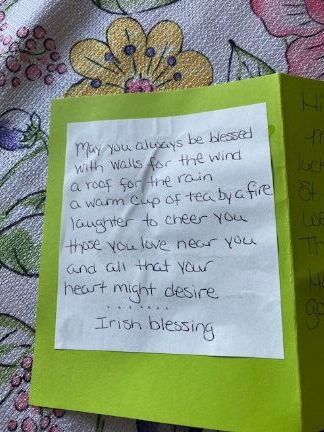 May you always be blessed
with walls for the wind
a roof for the rain
a warm cup of tea by a fire
laughter to cheer you
those you love near you
and all that your
heart might desire
.......
Irish blessing